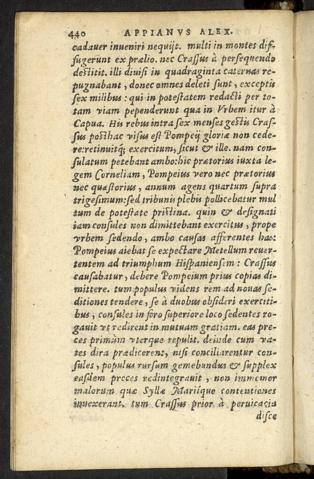 440 APPIANVS ALEX.
cadauer inueniri nequijt. multi in montes dif-
fugerunt ex prælio. nec Crassus à persequendo
destitit. illi diuisi in quadraginta cateruas re-
pugnabant, donec omnes deleti sunt, exceptis
sex milibus: qui in potestatem redacti per to-
tam viam pependerunt qua in Vrbem itur à
Capua. His rebus intra sex menses gestis Cras-
sus posthac visus est Pompeij gloriæ non cede-
re: retinuitq; exercitum, sicut & ille. nam con-
sulatum petebant ambo: hic prætorius iuxta le-
gem Corneliam, Pompeius vero nec prætorius
nec quæstorius, annum agens quartum supra
trigesimum: sed tribunis plebis pollicebatur mul
tum de potestate pristina. quin & designati
iam consules non dimittebant exercitus, prope
vrbem sedendo, ambo causas afferentes has:
Pompeius aiebat se expectare Metellum reuer-
tentem ad triumphum Hispaniensem: Crassus
causabatur, debere Pompeium prius copias di-
mittere. tum populus videns rem ad nouas se-
ditiones tendere, se à duobus obsideri exerciti-
bus, consules in foro superiore loco sedentes ro-
gauit vt redirent in mutuam gratiam. eas pre-
ces primùm vterque repulit. deinde cum va-
tes dira prædicerent, nisi conciliarentur con-
sules, populus rursum gemebundus & supplex
easdem preces redintegrauit, non immemor
malorum quæ Syllæ Mariíque contentiones
inuexerant. tum Crassus prior à peruicacia
disce